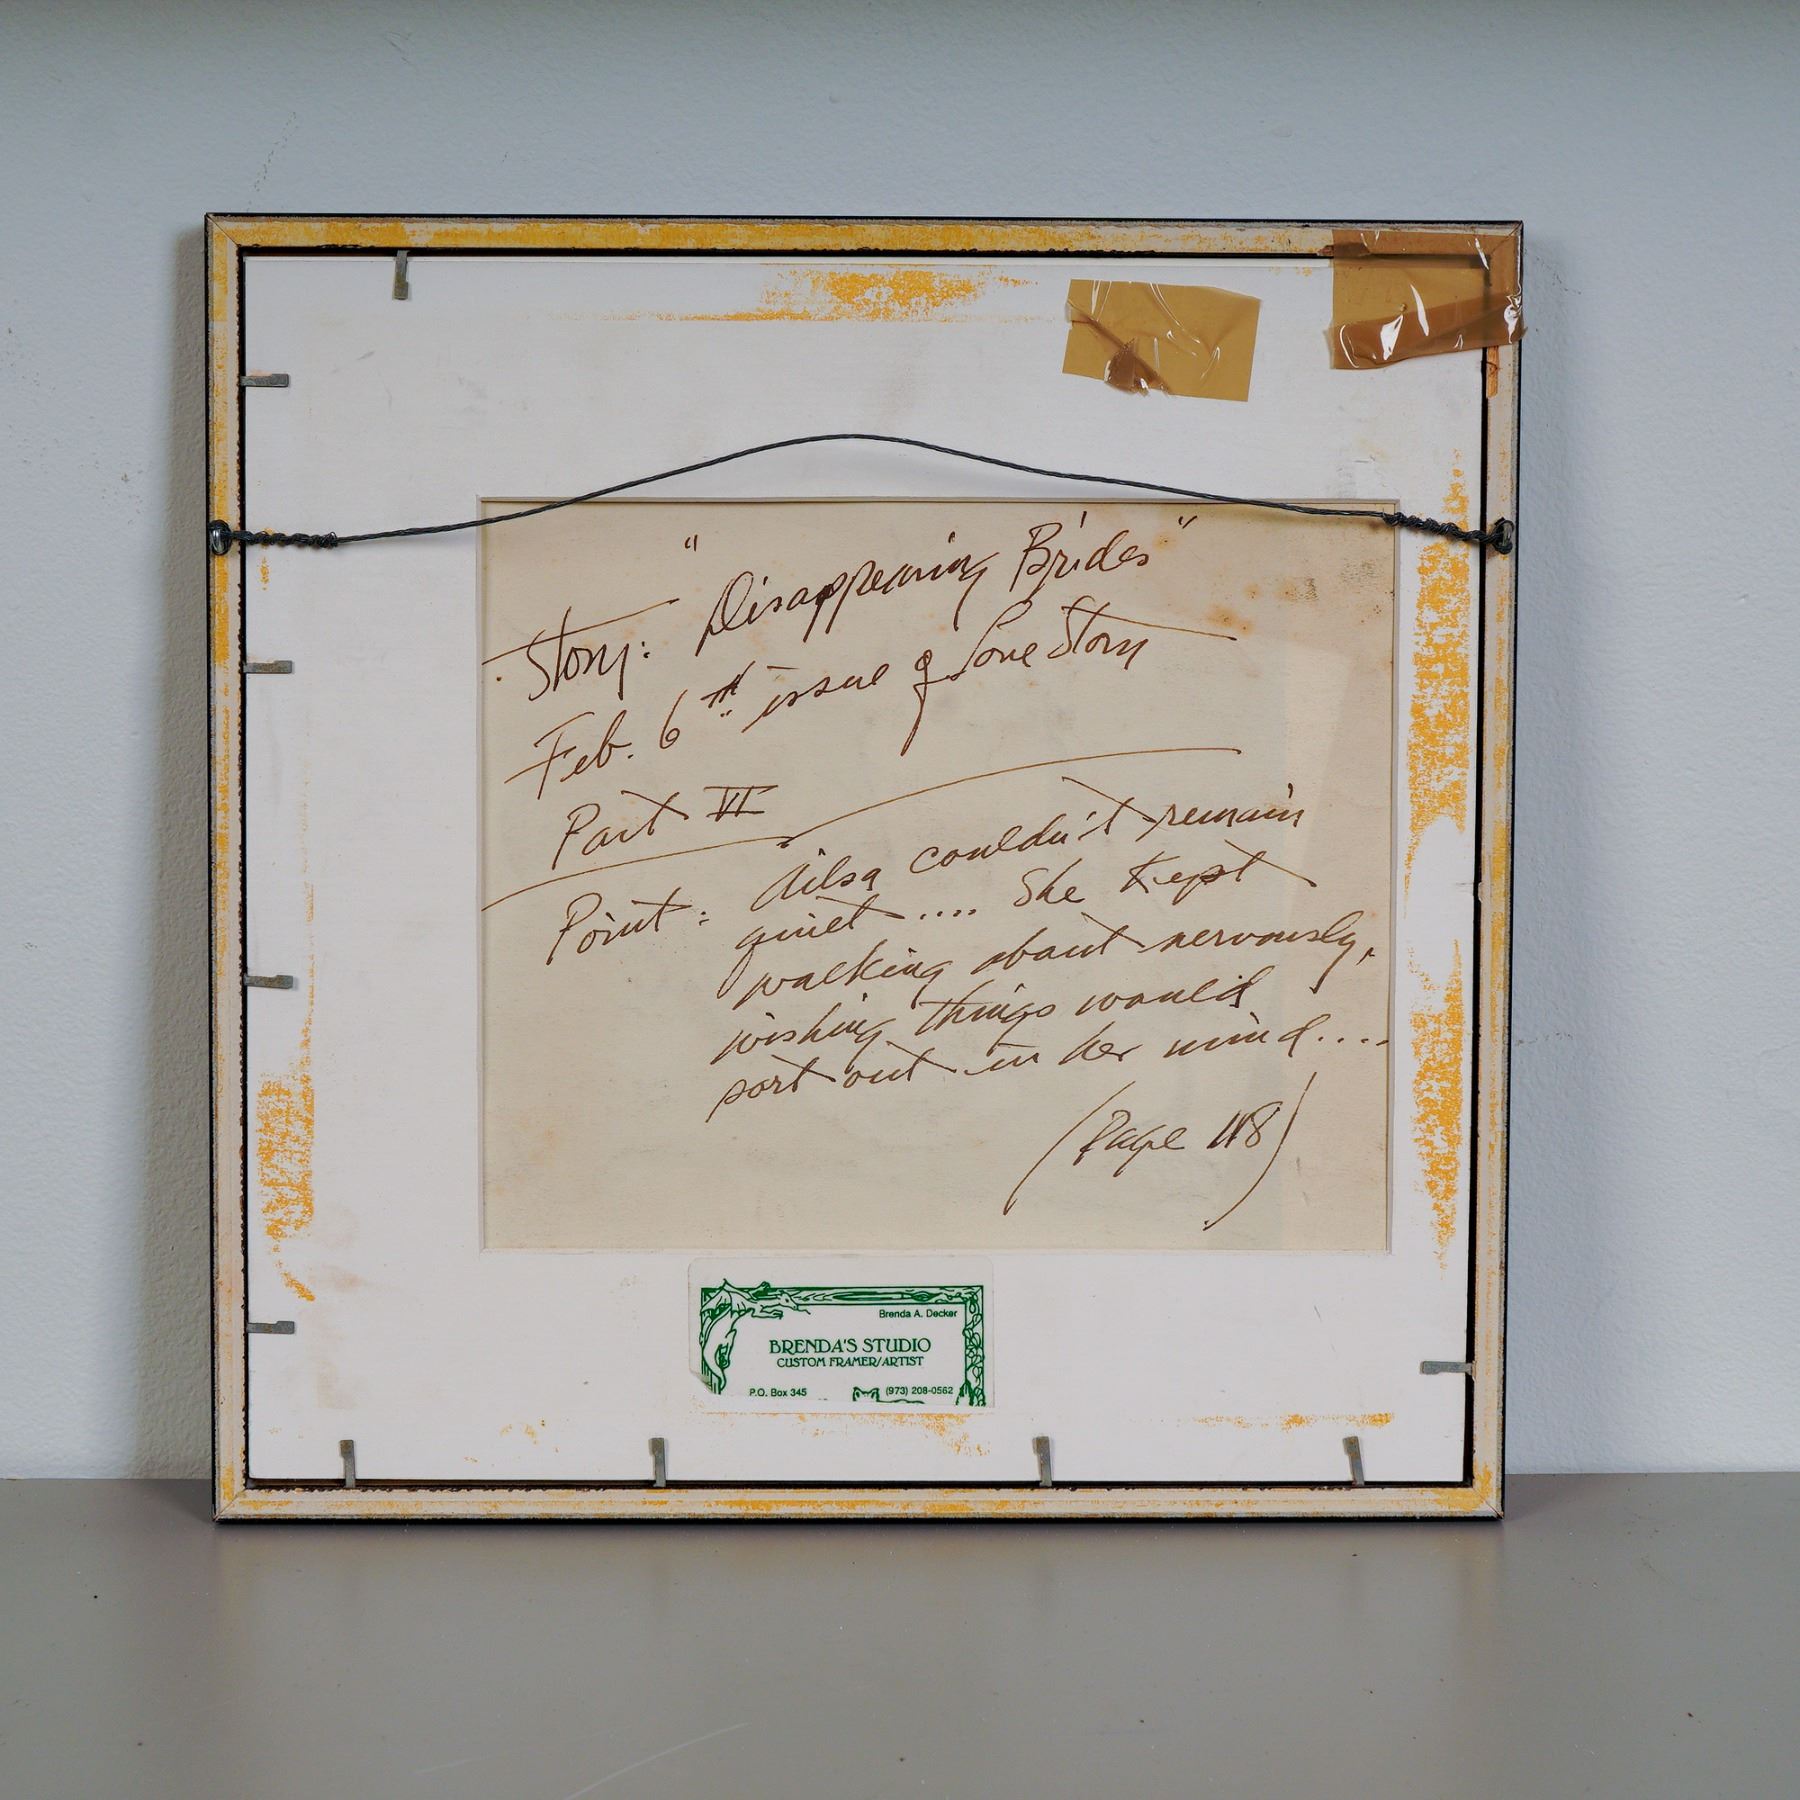 Story: "Disappearing Brides"
Feb. 6th issue of Love Story
Part VI
Point: Ailsa couldn't remain
quiet .... She kept
walking about nervously,
wishing things would
sort out in her mind....
(Page 118)
Brenda A. Decker
BRENDA'S STUDIO
CUSTOM FRAMER/ARTIST
P.O. Box 345 (973) 208-0562